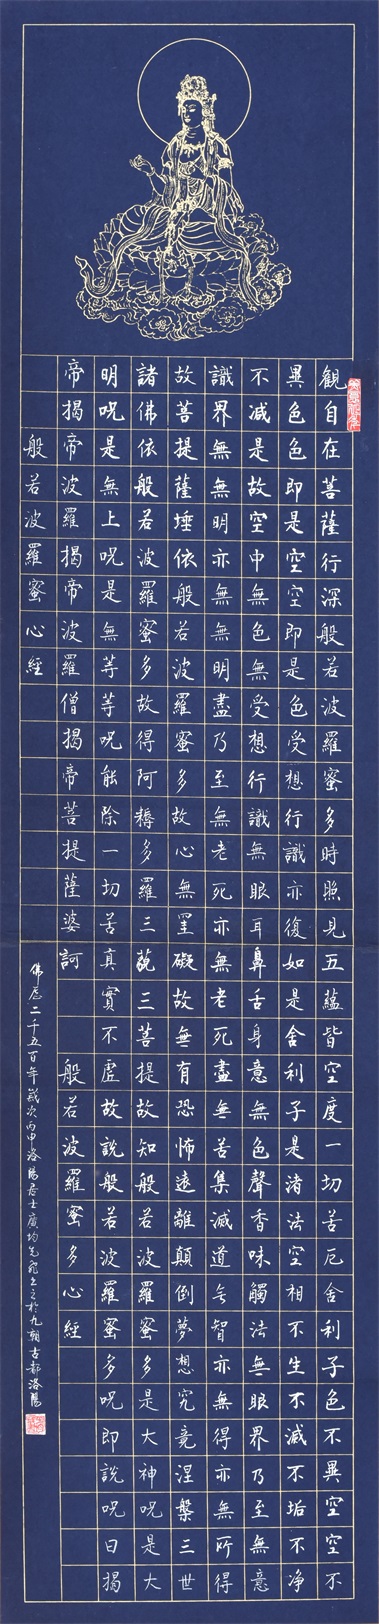 觀自在菩薩行深般若波羅蜜多時照見五蘊皆空度一切苦厄舍利子色不異空空不
異色色即是空空即是色受想行識亦復如是舍利子是諸法空相不生不滅不垢不净
不減是故空中無色無受想行識無眼耳鼻舌身意無色聲香味觸法無眼界乃至無意
識界無無明亦無無明盡乃至無老死亦無老死盡無苦集滅道無智亦無得亦無所得
故菩提薩埵依般若波羅蜜多故心無罣礙故無有恐怖遠離顛倒夢想究竟涅槃三世
諸佛依般若波羅蜜多故得阿耨多羅三藐三菩提故知般若波羅蜜多是大神呪是大
明呪是無上呪是無等等呪能除一切苦真實不虛故說般若波羅蜜多呪即說呪曰揭
帝揭帝波羅揭帝波羅僧揭帝菩提薩婆訶 般若波羅蜜多心經
般若波羅蜜心經
佛歷二千五百年歲次丙申洛陽居士廣均於九朝古都洛陽